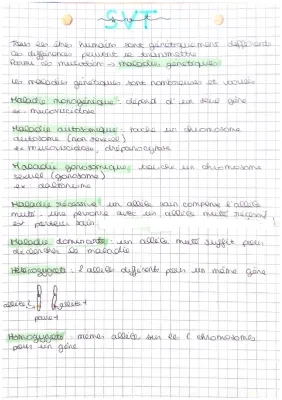 SVT
Tous les êtres humain sont génétiquement différents
ces différences peuvent se transmettre
Parfois les mutation → maladies génétiques
Les maladies génétiques sont nombreuses et
Maladie monogénique : dépend d'un seul gène
ex : mucoviscidose
Maladie autosomique : touche un chromosome
autosome (non sexuel)
ex : mucoviscidose, drépanocytose
Maladie gonosomique : touche un chromosome
sexuel (gonosome)
ex : daltonisme
Maladie récessive : un allèle sain compense l'allèle
muté. une personne avec un allèle muté récessif
est porteur sain.
Maladie dominante : un allèle muté suffit pour
déclencher la maladie
Hétérozygote : 2 allèles différents pour un même gène
allèle 2 allèle 1
paire 1
Homozygote : mêmes allèles sur les 2 chromosomes
pour un gène